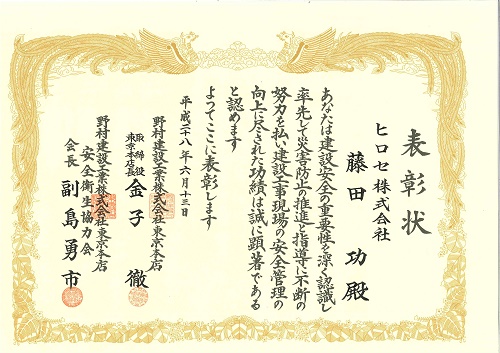 表彰状
ヒロセ株式会社
藤田 功 殿
あなたは建設安全の重要性を深く認識し
率先して災害防止の推進と指導に不断の
努力を払い建設工事現場の安全管理の
向上に尽された功績は誠に顕著である
と認めます
よってここに表彰します
平成二八年六月十三日
野村建設工業株式会社東京本店
取締役
東京本店長 金子 徹
野村建設工業株式会社東京本店
安全衛生協力会
会長 副島勇市